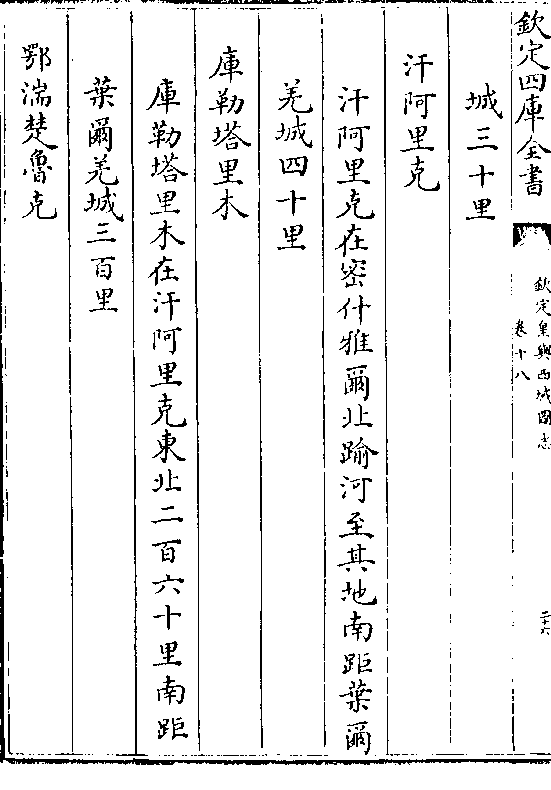 欽定四庫全書
欽定皇輿西域圖志
卷十八
二十六
城三十里
汗阿里克
汗阿里克在密什雅爾北踰河至其地南距葉爾
羌城四十里
庫勒塔里木
庫勒塔里木在汗阿里克東北二百六十里南距
葉爾羌城三百里
鄂湍楚魯克